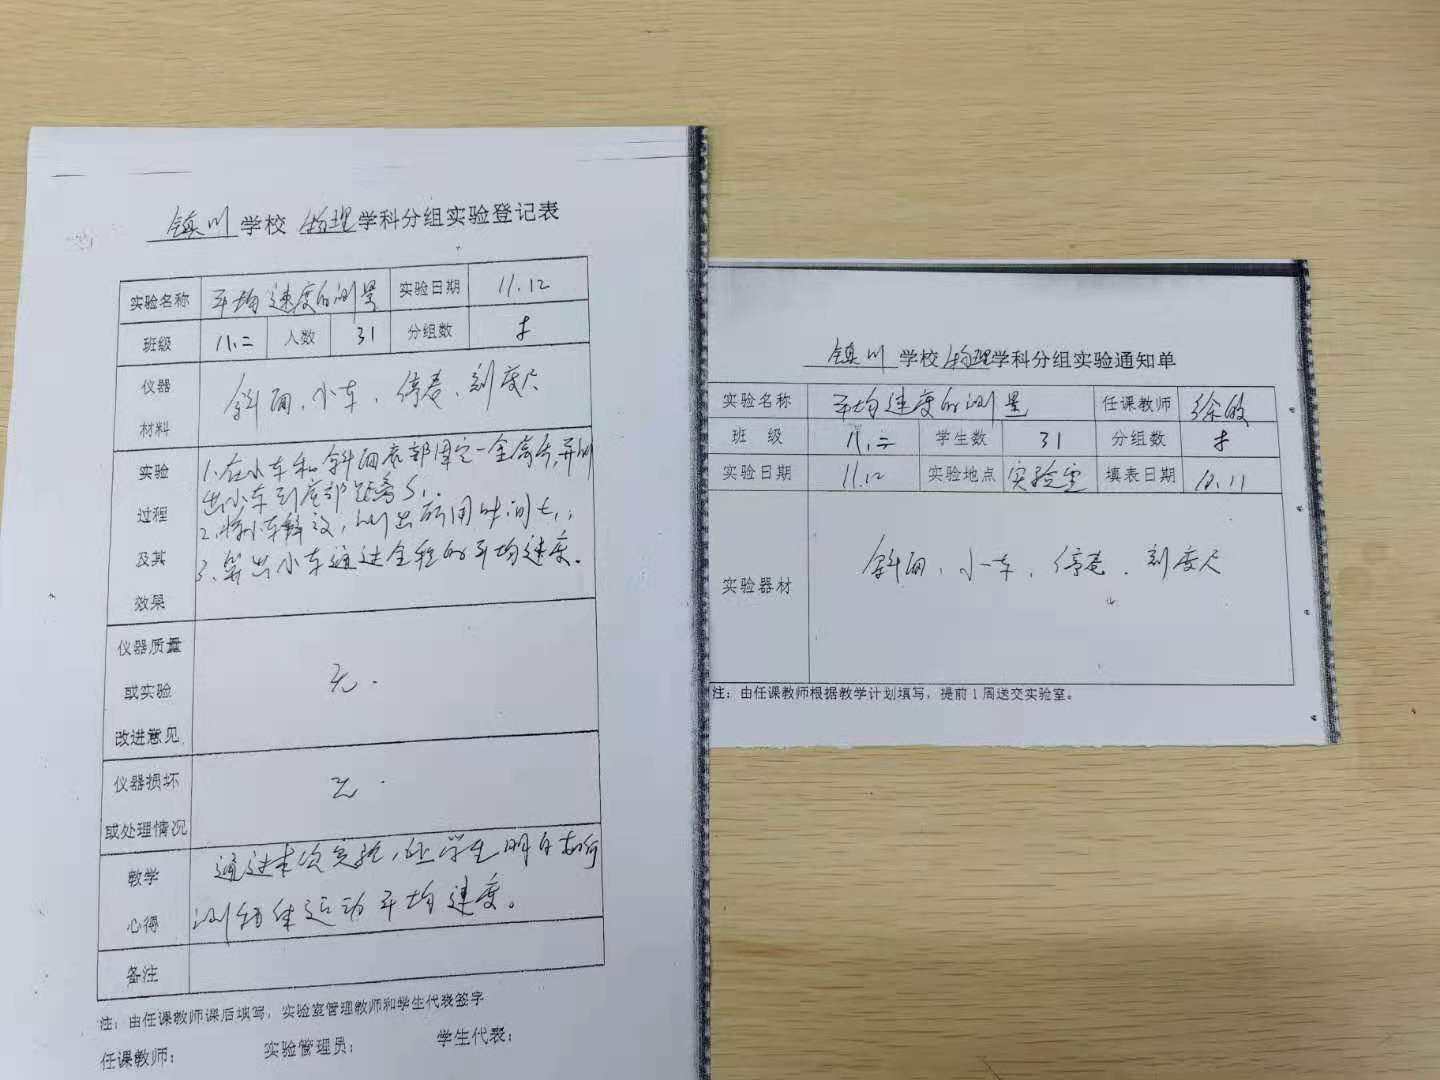 镇川学校 物理学科分组实验登记表
实验名称 平均速度的测量 实验日期 11.12
班级 八.二 人数 31 分组数
仪器 材料 斜面、小车、停表、刻度尺
实验 过程 及其 效果
1.在小车和斜面底部固定一金属片,并测
出小车到底部距离S1.
2.将小车释放,测出所用时间t1;
3.算出小车通过全程的平均速度。
仪器质量 或实验 改进意见 无.
仪器损坏 或处理情况 无.
教学 心得 通过本次实验,让学生明白如何
测物体运动平均速度。
备注
注:由任课教师课后填写,实验室管理教师和学生代表签字
任课教师: 实验管理员: 学生代表:
镇川学校 物理学科分组实验通知单
实验名称 平均速度的测量 任课教师
班 级 八.二 学生数 31 分组数
实验日期 11.12 实验地点 实验室 填表日期
实验器材 斜面、小车、停表、刻度尺
注:由任课教师根据教学计划填写,提前1周送交实验室。